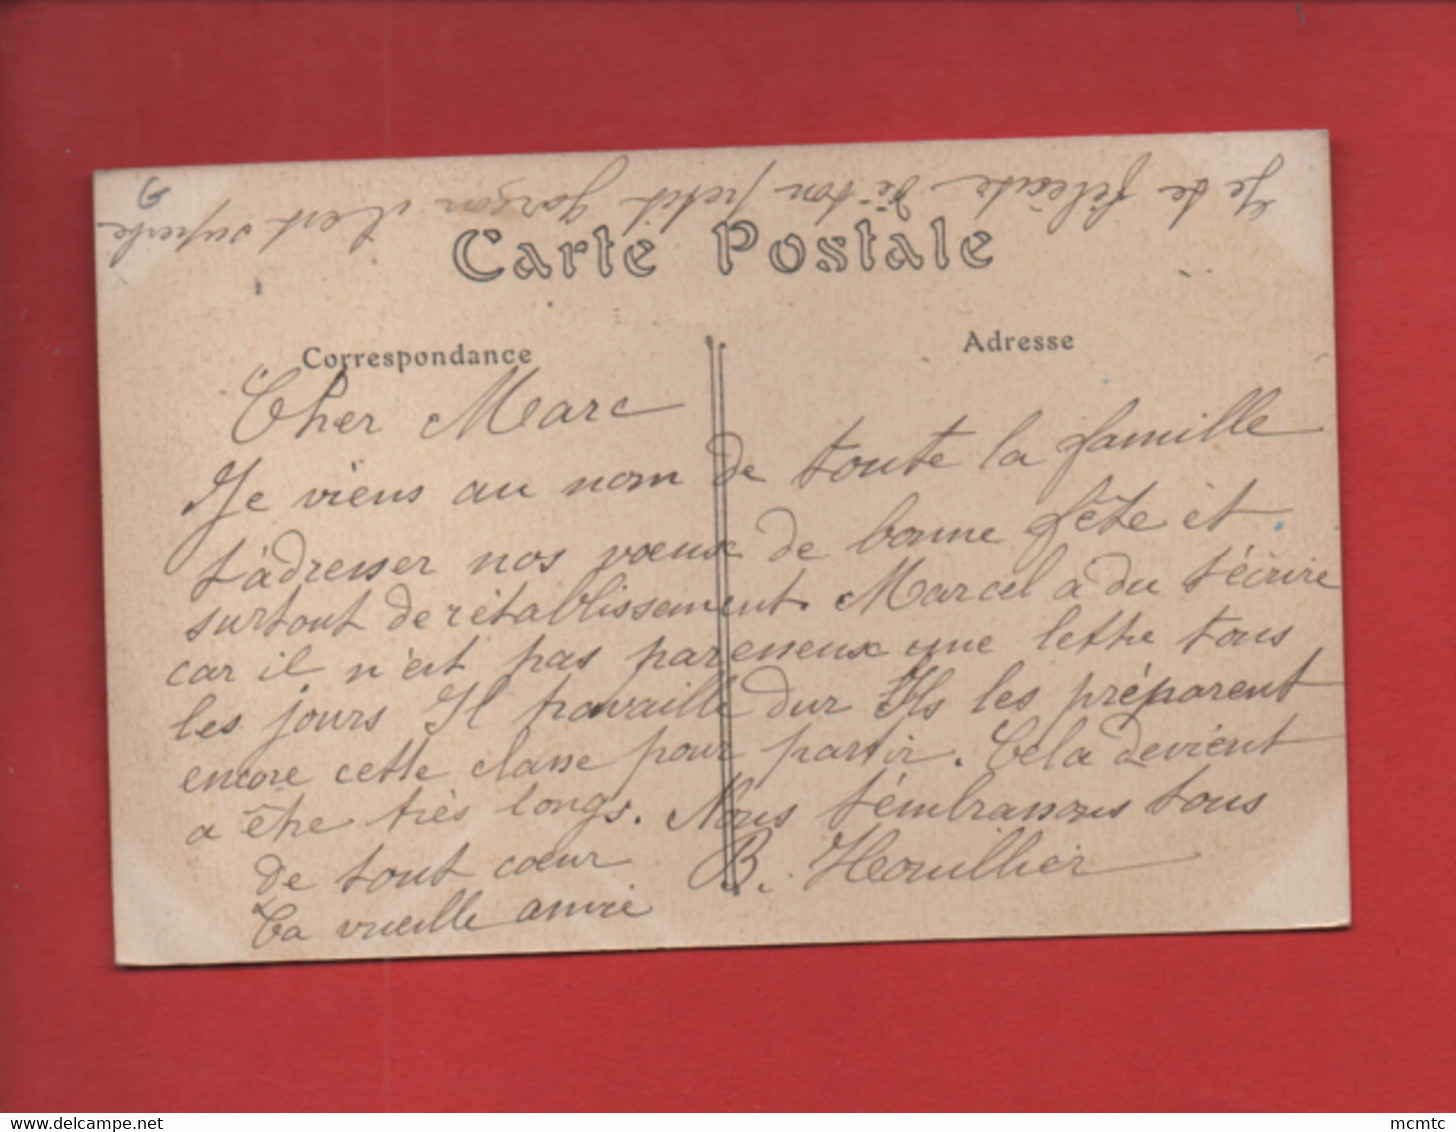 Je te félicite de ton petit garçon il est superbe
Carte Postale
Correspondance
Adresse
Cher Marc
Je viens au nom de toute la famille
t'adresser nos voeux de bonne fête et
surtout de rétablissement. Marcel a du t'écrire
car il n'est pas paresseux une lettre tous
les jours Il travaille dur Ils les préparent
encore cette classe pour partir. Cela devient
a être très longs. Nous t'embrassons tous
de tout coeur B. Houillier
Ta vieille amie
delcampe.net
mcmtc